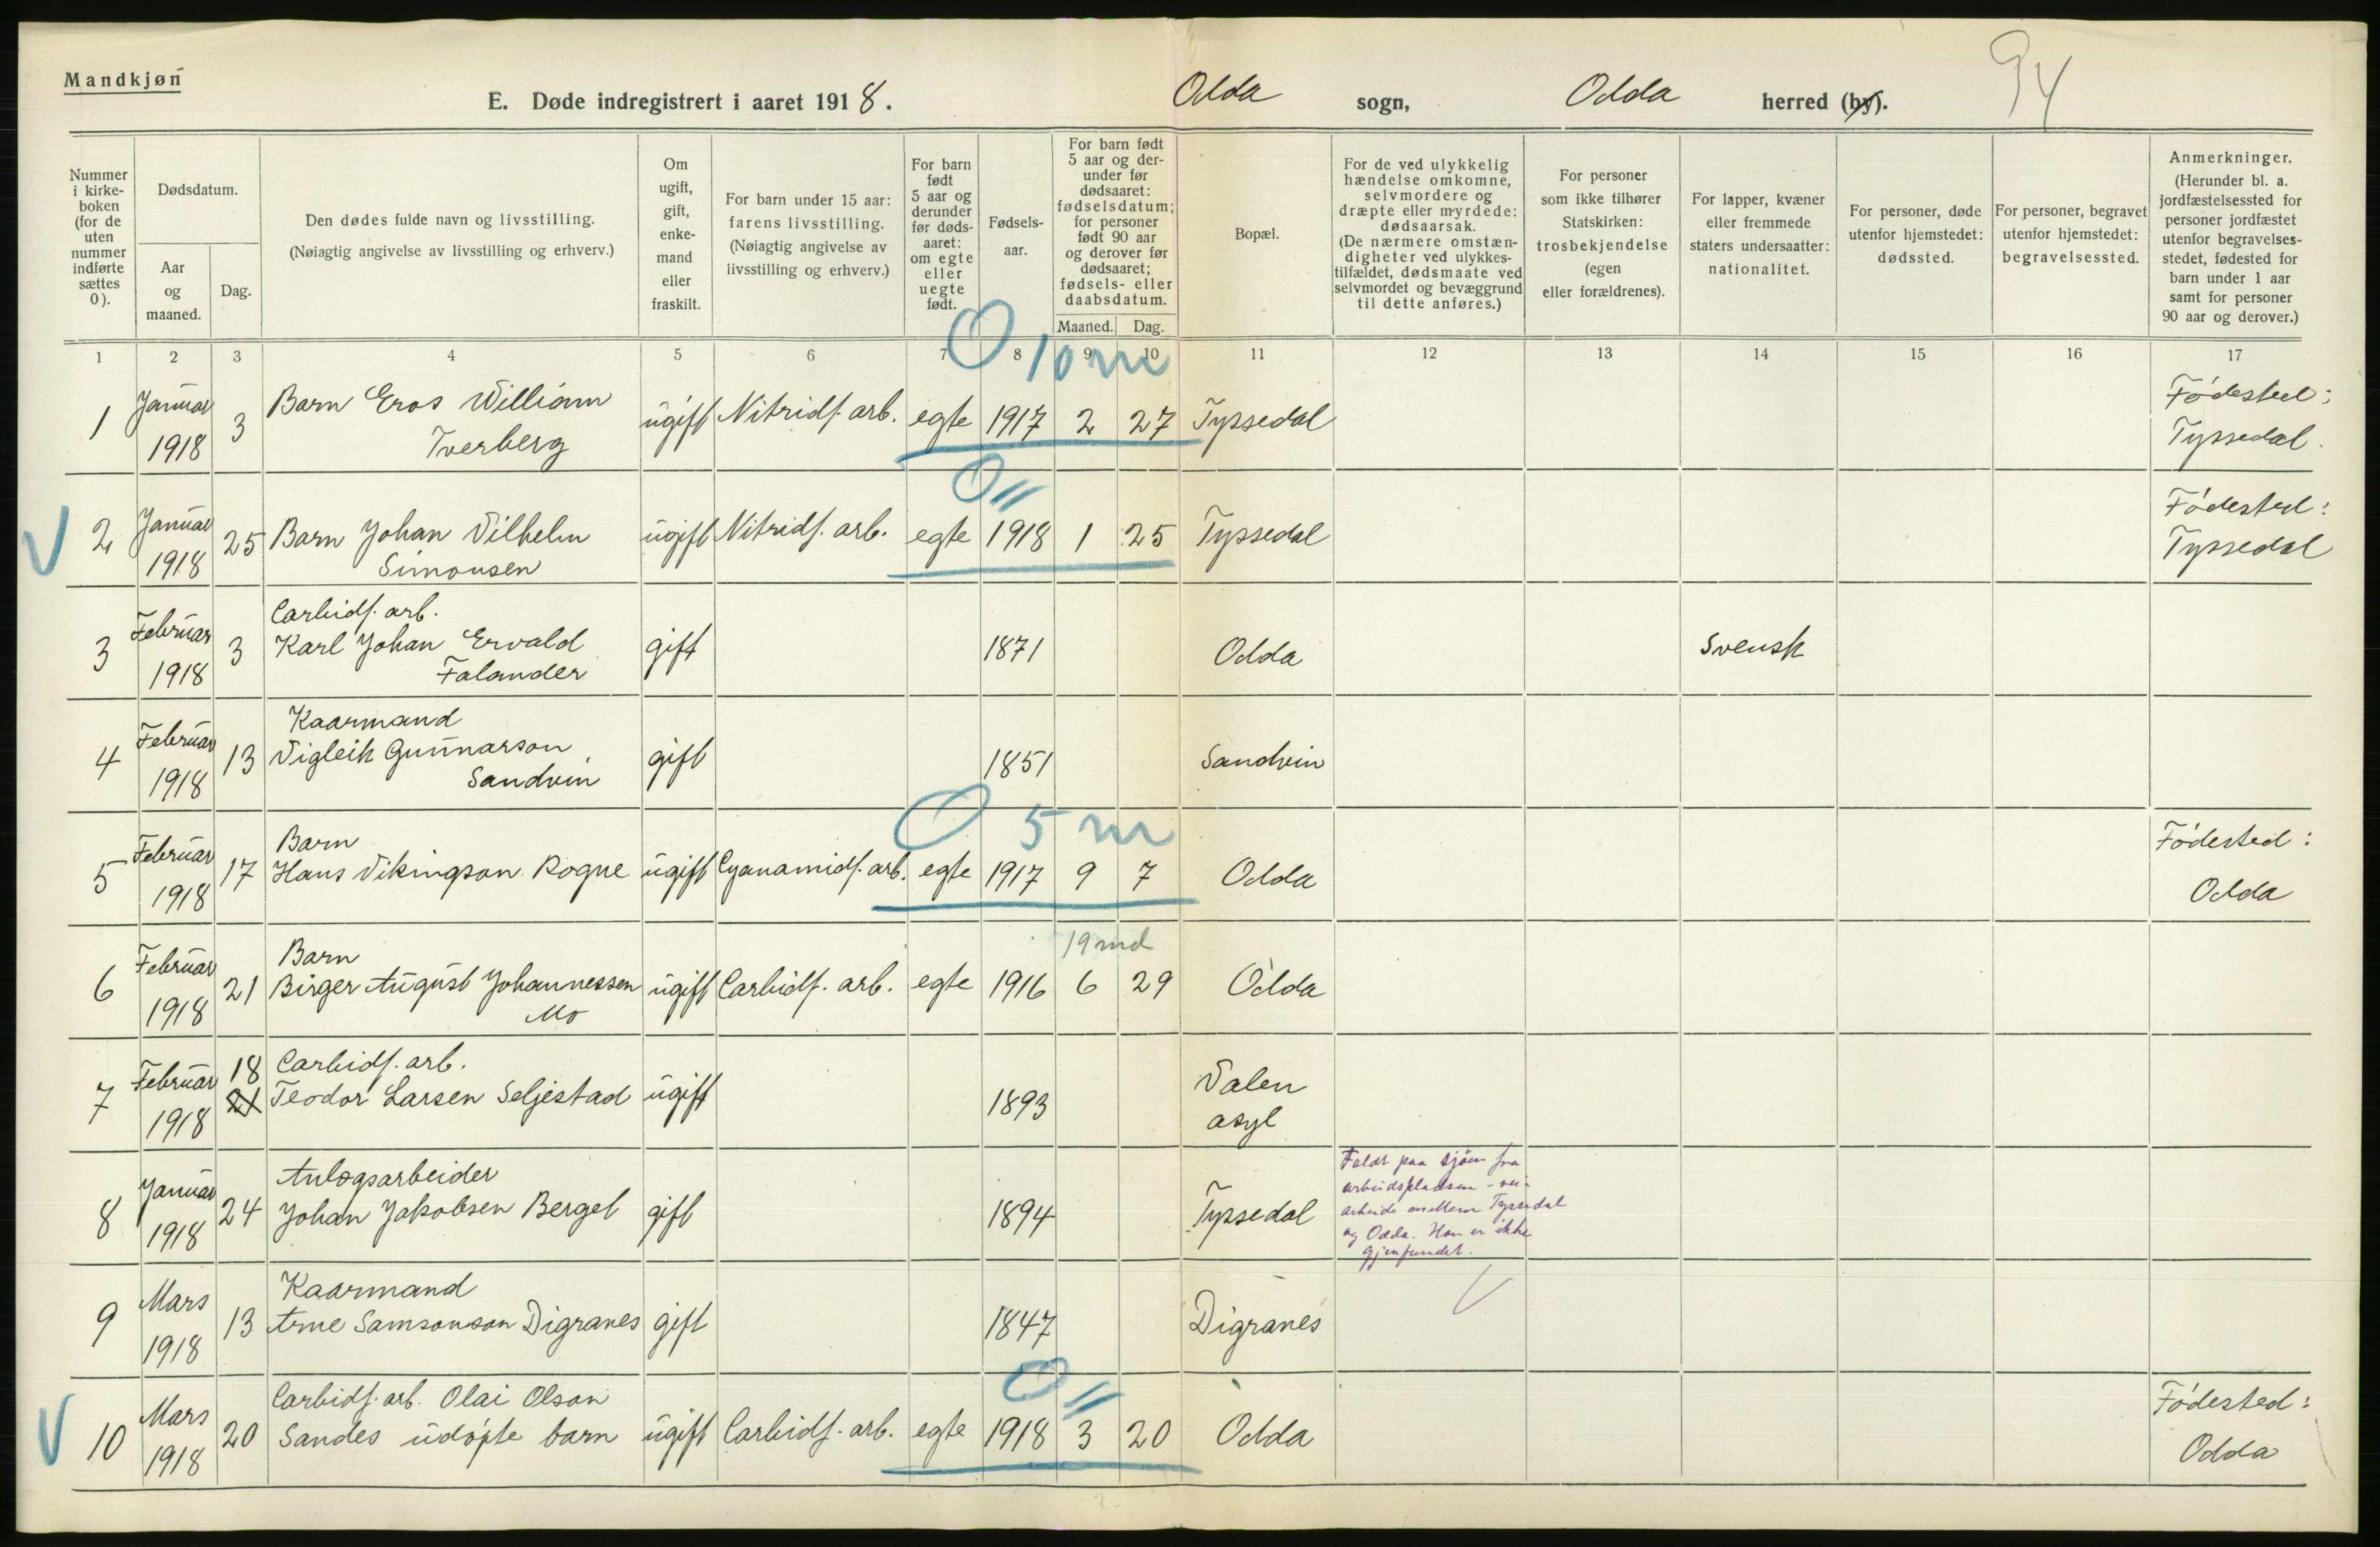 Mandkjøn
E. Døde indregistrert i aaret 1918. Odda sogn, Odda herred (by).
94
Nummer i kirke-boken (for de uten nummer indførte sættes 0).
Dødsdatum.
Aar og maaned.
Dag.
Den dødes fulde navn og livsstilling.
(Nøiagtig angivelse av livsstilling og erhverv.)
Om ugift, gift, enke-mand eller fraskilt.
For barn under 15 aar: farens livsstilling.
(Nøiagtig angivelse av livsstilling og erhverv.)
For barn født 5 aar og derunder før døds-aaret: om egte eller uegte født.
Fødsels-aar.
For barn født 5 aar og der-under før dødsaaret: fødselsdatum; for personer født 90 aar og derover før dødsaaret; fødsels- eller daabsdatum.
Maaned. Dag.
Bopæl.
For de ved ulykkelig hændelse omkomne, selvmordere og dræpte eller myrdede: dødsaarsak.
(De nærmere omstæn-digheter ved ulykkes-tilfældet, dødsmaate ved selvmordet og bevæggrund til dette anføres.)
For personer som ikke tilhører Statskirken: trosbekjendelse (egen eller forældrenes).
For lapper, kvæner eller fremmede staters undersaatter: nationalitet.
For personer, døde utenfor hjemstedet: dødssted.
For personer, begravet utenfor hjemstedet: begravelsessted.
Anmerkninger.
(Herunder bl. a. jordfæstelsessted for personer jordfæstet utenfor begravelses-stedet, fødested for barn under 1 aar samt for personer 90 aar og derover.)
1 2 3 4 5 6 7 8 9 10 11 12 13 14 15 16 17
0 10 m
1 Januar 1918 3 Barn Eros William Tverberg ugift Nitridf. arb. egte 1917 2 27 Tyssedal Fødested: Tyssedal.
0 "
V 2 Januar 1918 25 Barn Johan Vilhelm Simonsen ugift Nitridf. arb. egte 1918 1 25 Tyssedal Fødested: Tyssedal
3 Februar 1918 3 Carbidf. arb. Karl Johan Ervald Falander gift 1871 Odda Svensk
4 Februar 1918 13 Kaarmand Vigleik Gunnarson Sandvin gift 1851 Sandvin
0 5 m
5 Februar 1918 17 Barn Hans Vikingson Rogne ugift Cyanamidf. arb. egte 1917 9 7 Odda Fødested: Odda
19 md
6 Februar 1918 21 Barn Birger August Johannessen Mo ugift Carbidf. arb. egte 1916 6 29 Odda
7 Februar 1918 18 21 Carbidf. arb. Teodor Larsen Seljestad ugift 1893 Valen asyl
8 Januar 1918 24 Anlegsarbeider Johan Jakobsen Berget gift 1894 Tyssedal Faldt paa sjøen fra arbeidspladsen - vei-arbeide mellem Tyssedal og Odda. Han er ikke gjenfundet.
9 Mars 1918 13 Kaarmand Arne Samsonson Digranes gift 1847 Digranes
0 "
V 10 Mars 1918 20 Carbidf. arb. Olai Olson Sandes udøpte barn ugift Carbidf. arb. egte 1918 3 20 Odda Fødested: Odda